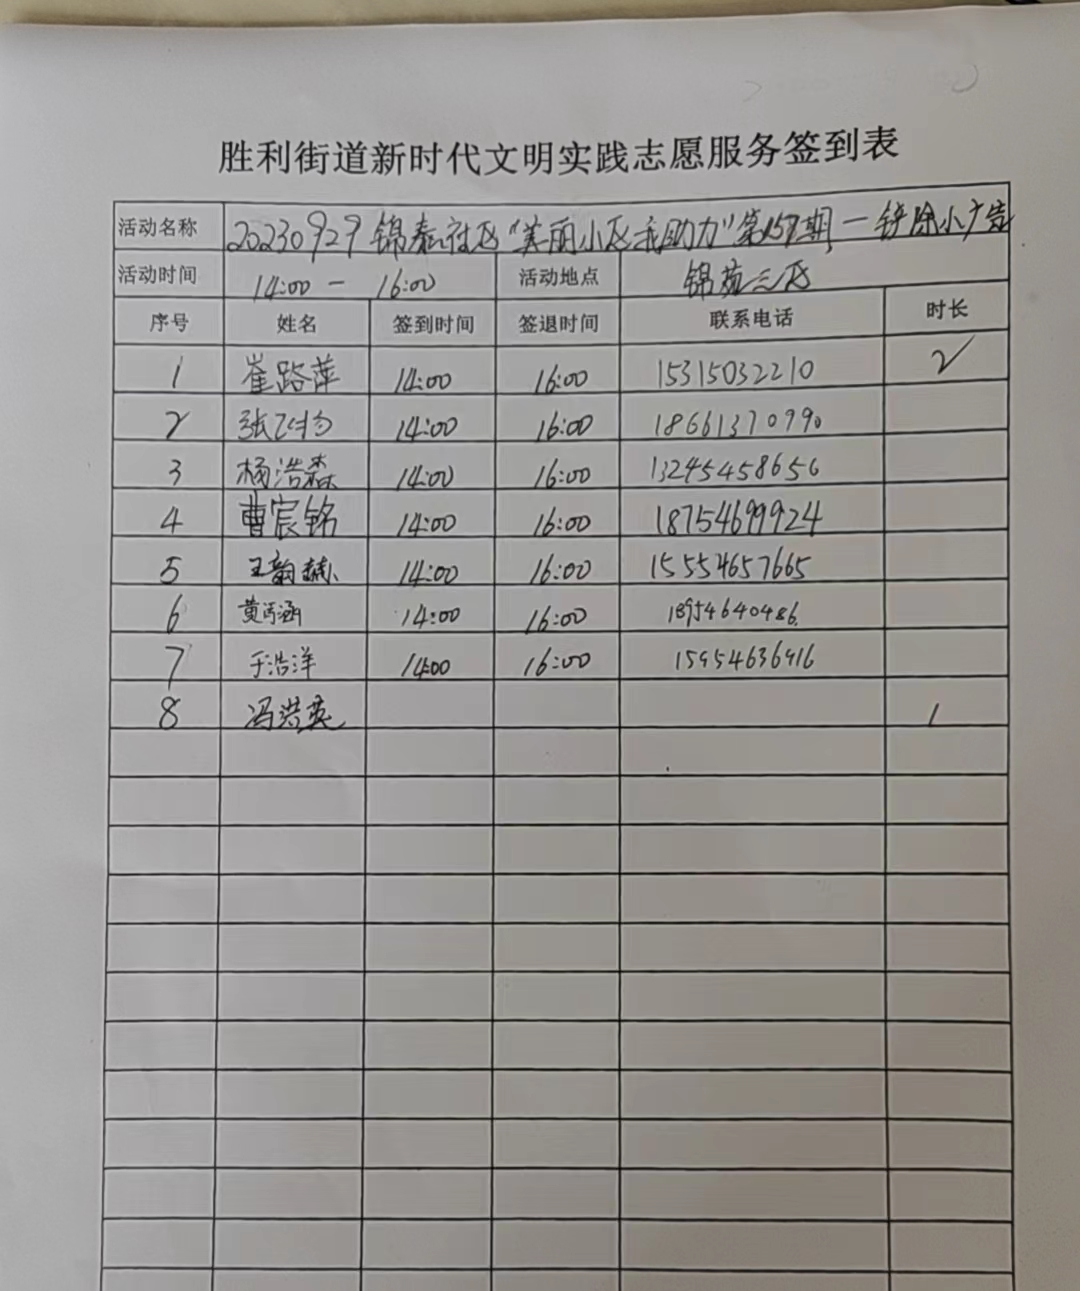 胜利街道新时代文明实践志愿服务签到表
活动名称 20230929锦泰社区“美丽小区我助力”第157期—铲除小广告
活动时间 14:00 — 16:00 活动地点 锦苑三区
序号 姓名 签到时间 签退时间 联系电话 时长
1 崔路萍 14:00 16:00 15315032210 2
2 张 14:00 16:00 18661370990
3 杨浩森 14:00 16:00 13245458656
4 曹宸铭 14:00 16:00 18754699924
5 王韵赫 14:00 16:00 15554657665
6 黄丐涵 14:00 16:00 18954640486
7 于浩洋 14:00 16:00 15954636916
8 冯洪英 1